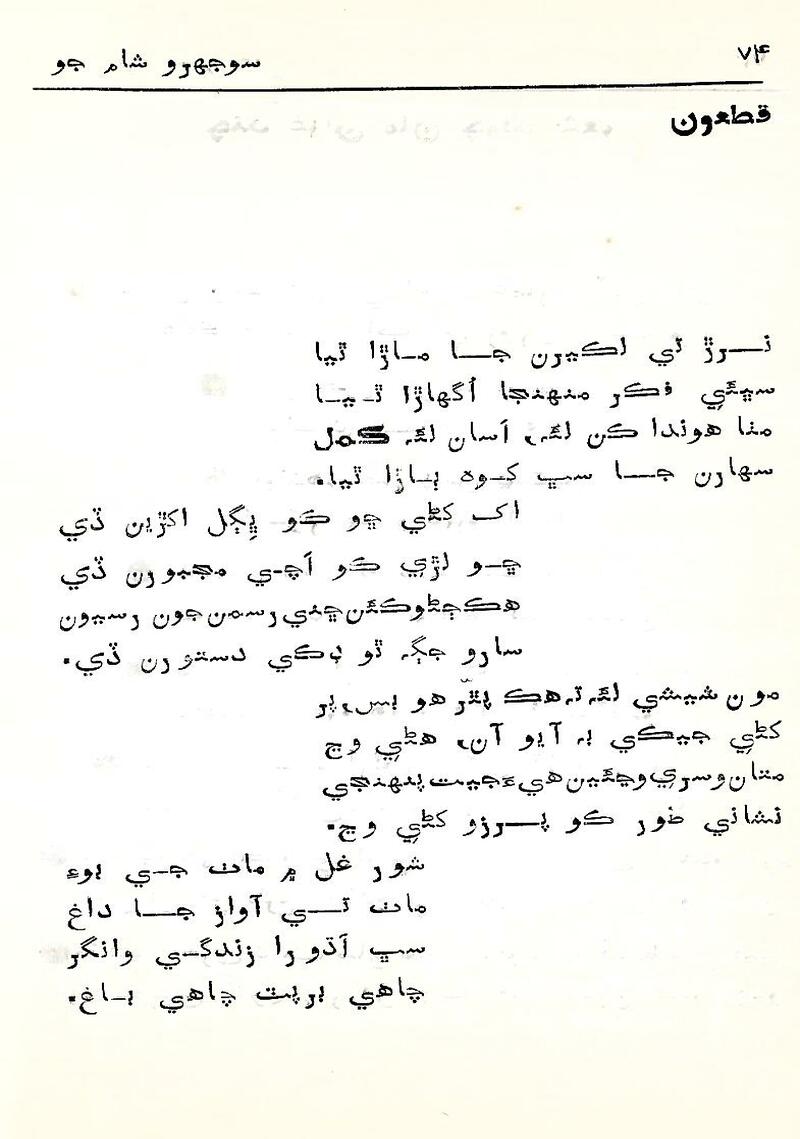 ۷۴
سوجهرو شام جو
قطعون
نرڙ تي لڪيرن جا ماڙا ٿيا
سڀئي فڪر منهنجا اُگهاڙا ٿيا
متا هوندا ڪن لئہ، اَسان لئہ گمل
سهارن جا سڀ کوه پاڙا ٿيا.
اک کڻي ڇو ڪو ڀِڳل اکڙين ڏي
ڇو لڙي ڪو اَچي مجبورن ڏي
هڪ ڄڻو ڪئن ڇني رسمن جون رسيون
سارو جڳہ ٿو ٻڪي دستورن ڏي.
مون شيشي لئہ تہ هڪ پٿّر هو بس، پر
کڻي جيڪي بہ آيو آن، هڻي وڃ
متان وسري وڃئين هيءَ جيت پنهنجي
نشاني طور ڪو پرزو کڻي وڃ.
شور غل ۾ مات جي ٻوءِ
مات تي آواز جا داغ
سڀ اَڌورا زندگي وانگر
چاهي برپٽ چاهي باغ.